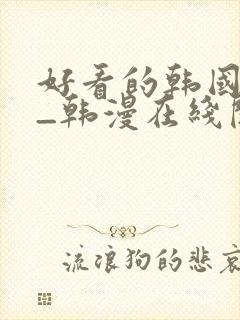 好看的韩国
–韩漫在线阅
流浪狗的悲哀